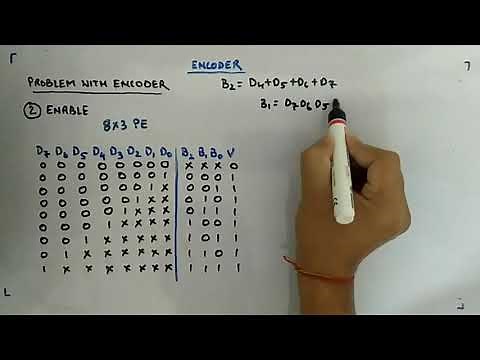 ENCODER
PROBLEM WITH ENCODER
B2 = D4+D5+D6+D7
② ENABLE
B1 = D7D6D5
8X3 PE
D7 D6 D5 D4 D3 D2 D1 D0 B2 B1 B0 V
0 0 0 0 0 0 0 0 X X X 0
0 0 0 0 0 0 0 1 0 0 0 1
0 0 0 0 0 0 1 X 0 0 1 1
0 0 0 0 0 1 X X 0 1 0 1
0 0 0 0 1 X X X 0 1 1 1
0 0 0 1 X X X X 1 0 0 1
0 0 1 X X X X X 1 0 1 1
0 1 X X X X X X 1 1 0 1
1 X X X X X X X 1 1 1 1